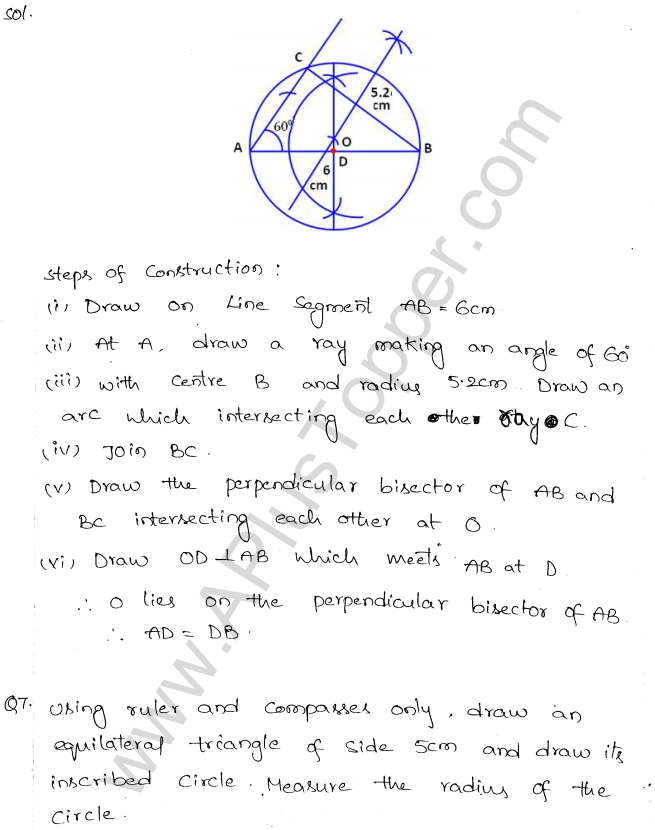 Sol.
C
5.2
cm
60°
A
O
B
D
6
cm
Steps of Construction :
(i) Draw on Line Segment AB = 6cm
(ii) At A, draw a ray making an angle of 60°
(iii) with centre B and radius 5.2cm. Draw an
arc which intersecting each other ray C.
(iv) Join BC.
(v) Draw the perpendicular bisector of AB and
BC intersecting each other at O.
(vi) Draw OD ⊥ AB which meets AB at D.
∴ O lies on the perpendicular bisector of AB.
∴ AD = DB.
Q7. Using ruler and compasses only, draw an
equilateral triangle of side 5cm and draw its
inscribed circle. Measure the radius of the
circle.
www.APlusTopper.com